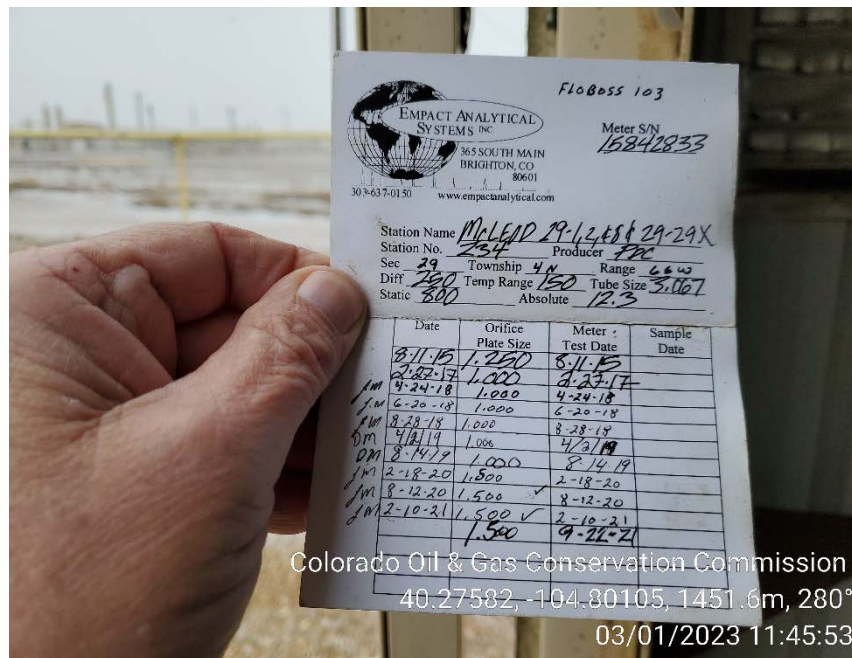 FLOBOSS 103
EMPACT ANALYTICAL
SYSTEMS INC
Meter S/N
15842833
365 SOUTH MAIN
BRIGHTON, CO
80601
303-637-0150 www.empactanalytical.com
Station Name McLEAD 29-1,2,&8 & 29-29X
Station No. 234 Producer PDC
Sec 29 Township 4N Range 66W
Diff 250 Temp Range 150 Tube Size 3.067
Static 800 Absolute 12.3
Date Orifice Plate Size Meter Test Date Sample Date
8-11-15 1.250 8-11-15
2-27-17 1.000 2-27-17
JM 4-24-18 1.000 4-24-18
J.M 6-20-18 1.000 6-20-18
JM 8-28-18 1.000 8-28-18
DM 4/2/19 1.000 4/2/19
DM 8-14-19 1.000 8-14-19
JM 2-18-20 1.500 2-18-20
JM 8-12-20 1.500 ✓ 8-12-20
JM 2-10-21 1.500 ✓ 2-10-21
1.500 9-22-21
Colorado Oil & Gas Conservation Commission
40.27582, -104.80105, 1451.6m, 280°
03/01/2023 11:45:53